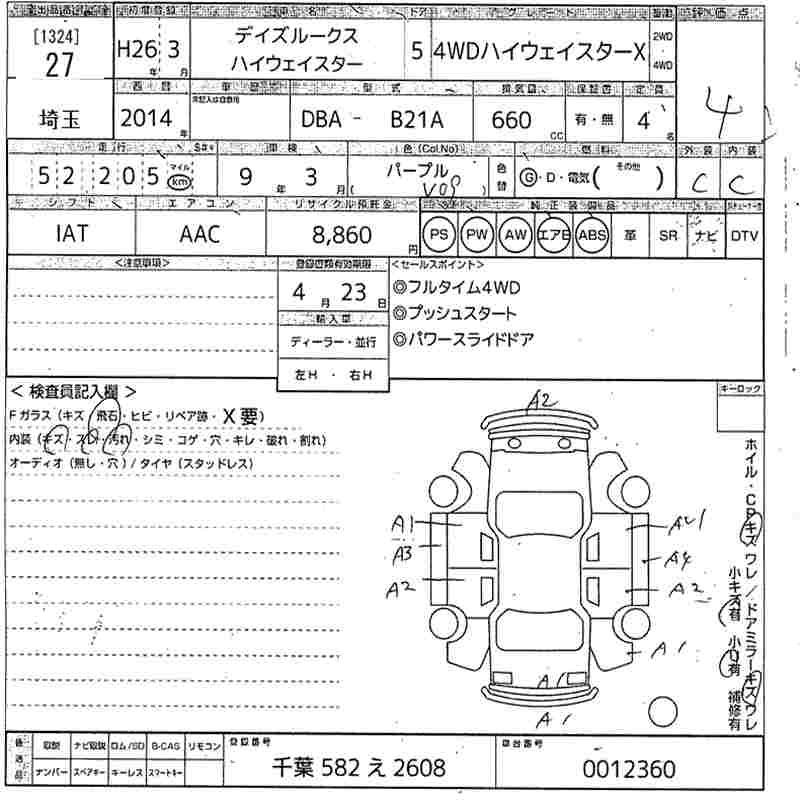 初度登録 車名 ドア グレード 評価点
[1324]
27
H26年 3月
デイズルークス
ハイウェイスター
5
4WDハイウェイスターX
2WD
・
4WD
4
西暦 型式 排気量 保証書 定員
埼玉
2014年
DBA - B21A
660 CC
有・無
4名
走行 車検 色(Col.No) 燃料 外装 内装
52 205 マイル km
9年 3月
パープル
(V09)
色替
G・D・電気( その他 )
C C
シフト エアコン リサイクル預託金 純正装備品
IAT
AAC
8,860円
PS PW AW エアB ABS 革 SR ナビ DTV
<注意事項>
登録書類有効期限
4月 23日
輸入車
ディーラー・並行
左H・右H
<セールスポイント>
◎フルタイム4WD
◎プッシュスタート
◎パワースライドドア
< 検査員記入欄 >
Fガラス(キズ・飛石・ヒビ・リペア跡・X要)
内装(キズ・スレ・汚れ・シミ・コゲ・穴・キレ・破れ・割れ)
オーディオ(無し・穴)/タイヤ(スタッドレス)
キーロック
A2
A1
A3
A2
A4
A2
A1
A1
A1
ホイル・CPキズワレ/ドアミラーキズワレ
小キズ有 小U有 補修有
後送品
取説 ナビ取説 ロム/SD B-CAS リモコン
ナンバー スペアキー キーレス スマートキー
登録番号
千葉 582 え 2608
車台番号
0012360